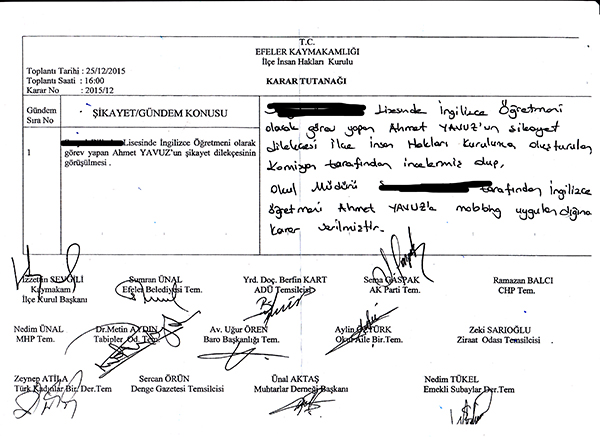 T.C.
EFELER KAYMAKAMLIĞI
İlçe İnsan Hakları Kurulu
Toplantı Tarihi : 25/12/2015
Toplantı Saati : 16:00
Karar No : 2015/12
KARAR TUTANAĞI
Gündem
Sıra No
ŞİKAYET/GÜNDEM KONUSU
1
Lisesinde İngilizce Öğretmeni olarak
görev yapan Ahmet YAVUZ'un şikayet dilekçesinin
görüşülmesi .
Lisesinde İngilizce Öğretmeni
olarak görev yapan Ahmet YAVUZ'un şikayet
dilekçesi İlçe İnsan Hakları Kuruluna oluşturulan
Komisyon tarafından incelenmiş olup,
Okul Müdürü tarafından İngilizce
öğretmeni Ahmet YAVUZ'a mobbing uygulandığına
karar verilmiştir.
İzzettin SEVGİLİ
Kaymakam
İlçe Kurul Başkanı
Sumran ÜNAL
Efeler Belediyesi Tem.
Yrd. Doç. Berfin KART
ADÜ Temsilcisi
Sema GASPAK
AK Parti Tem.
Ramazan BALCI
CHP Tem.
Nedim ÜNAL
MHP Tem.
Dr.Metin AYDIN
Tabipler Od. Tem.
Av. Uğur ÖREN
Baro Başkanlığı Tem.
Aylin ÖZTÜRK
Okul Aile Bir.Tem.
Zeki SARIOĞLU
Ziraat Odası Temsilcisi
Zeynep ATİLA
Türk Kadınlar Bir. Der.Tem
Sercan ÖRÜN
Denge Gazetesi Temsilcisi
Ünal AKTAŞ
Muhtarlar Derneği Başkanı
Nedim TÜKEL
Emekli Subaylar Der.Tem